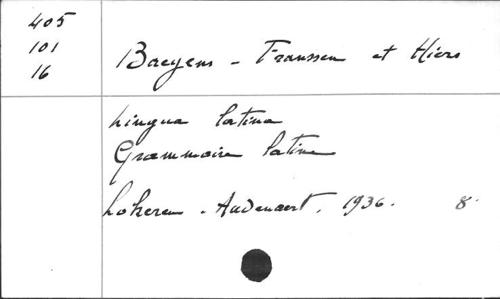 405
101
16
Baeyens - Franssen et Hiers
Lingua latina
Grammaire latine
Lokeren. Audenaert. 1936. 8°